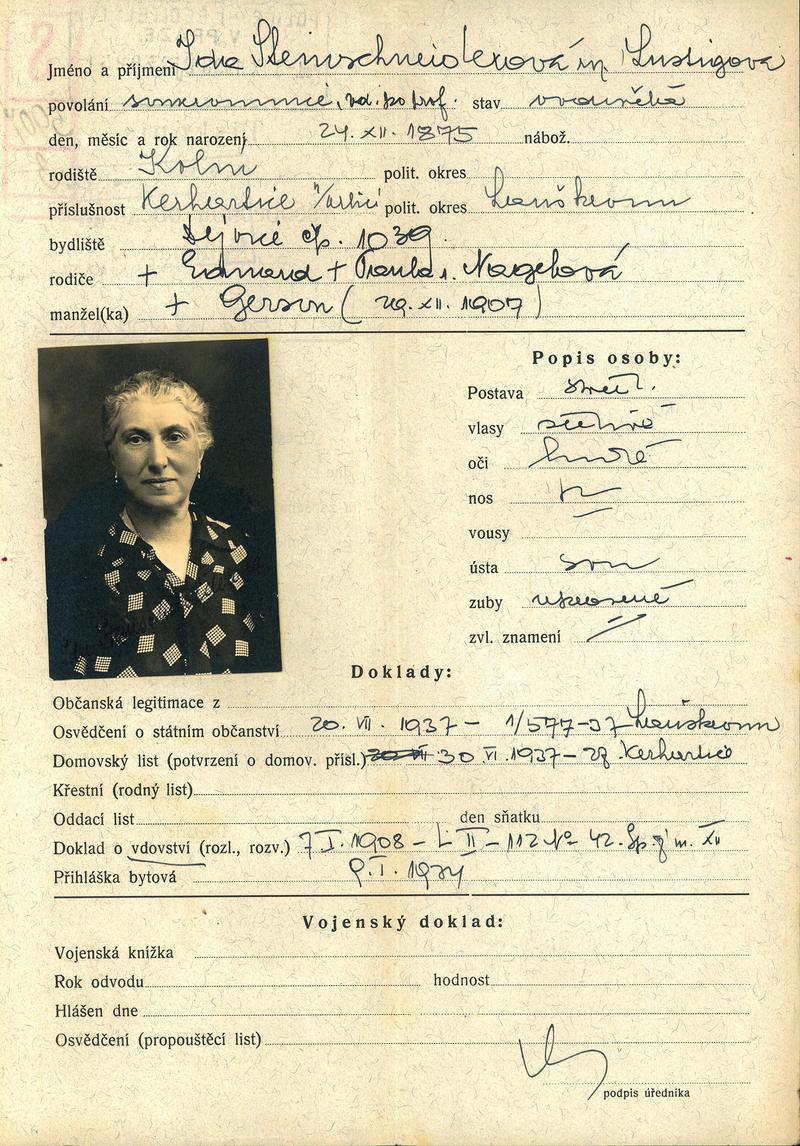 Jméno a příjmení Ida Steinschneiderová r. Lustigová
povolání soukromnice, vd. po prof. stav ovdovělá
den, měsíc a rok narození 24. XII. 1875 nábož.
rodiště Kolín polit. okres
příslušnost Kerhartice n/Orlicí polit. okres Lanškroun
bydliště Dejvice čp. 1039.
rodiče + Edmund + Paula r. Nagelová
manžel(ka) + Gerson (29. XII. 1907)
Popis osoby:
Postava střed.
vlasy
oči hnědé
nos
vousy
ústa
zuby
zvl. znamení
Doklady:
Občanská legitimace z
Osvědčení o státním občanství 20. VII. 1937 – 1/577-37 Lanškroun
Domovský list (potvrzení o domov. přísl.) 30 VI. 1937 – Kerhartice
Křestní (rodný list)
Oddací list den sňatku
Doklad o vdovství (rozl., rozv.) 7 I. 1908 – II – 112 No 42.
Přihláška bytová
Vojenský doklad:
Vojenská knížka
Rok odvodu hodnost
Hlášen dne
Osvědčení (propouštěcí list)
podpis úředníka